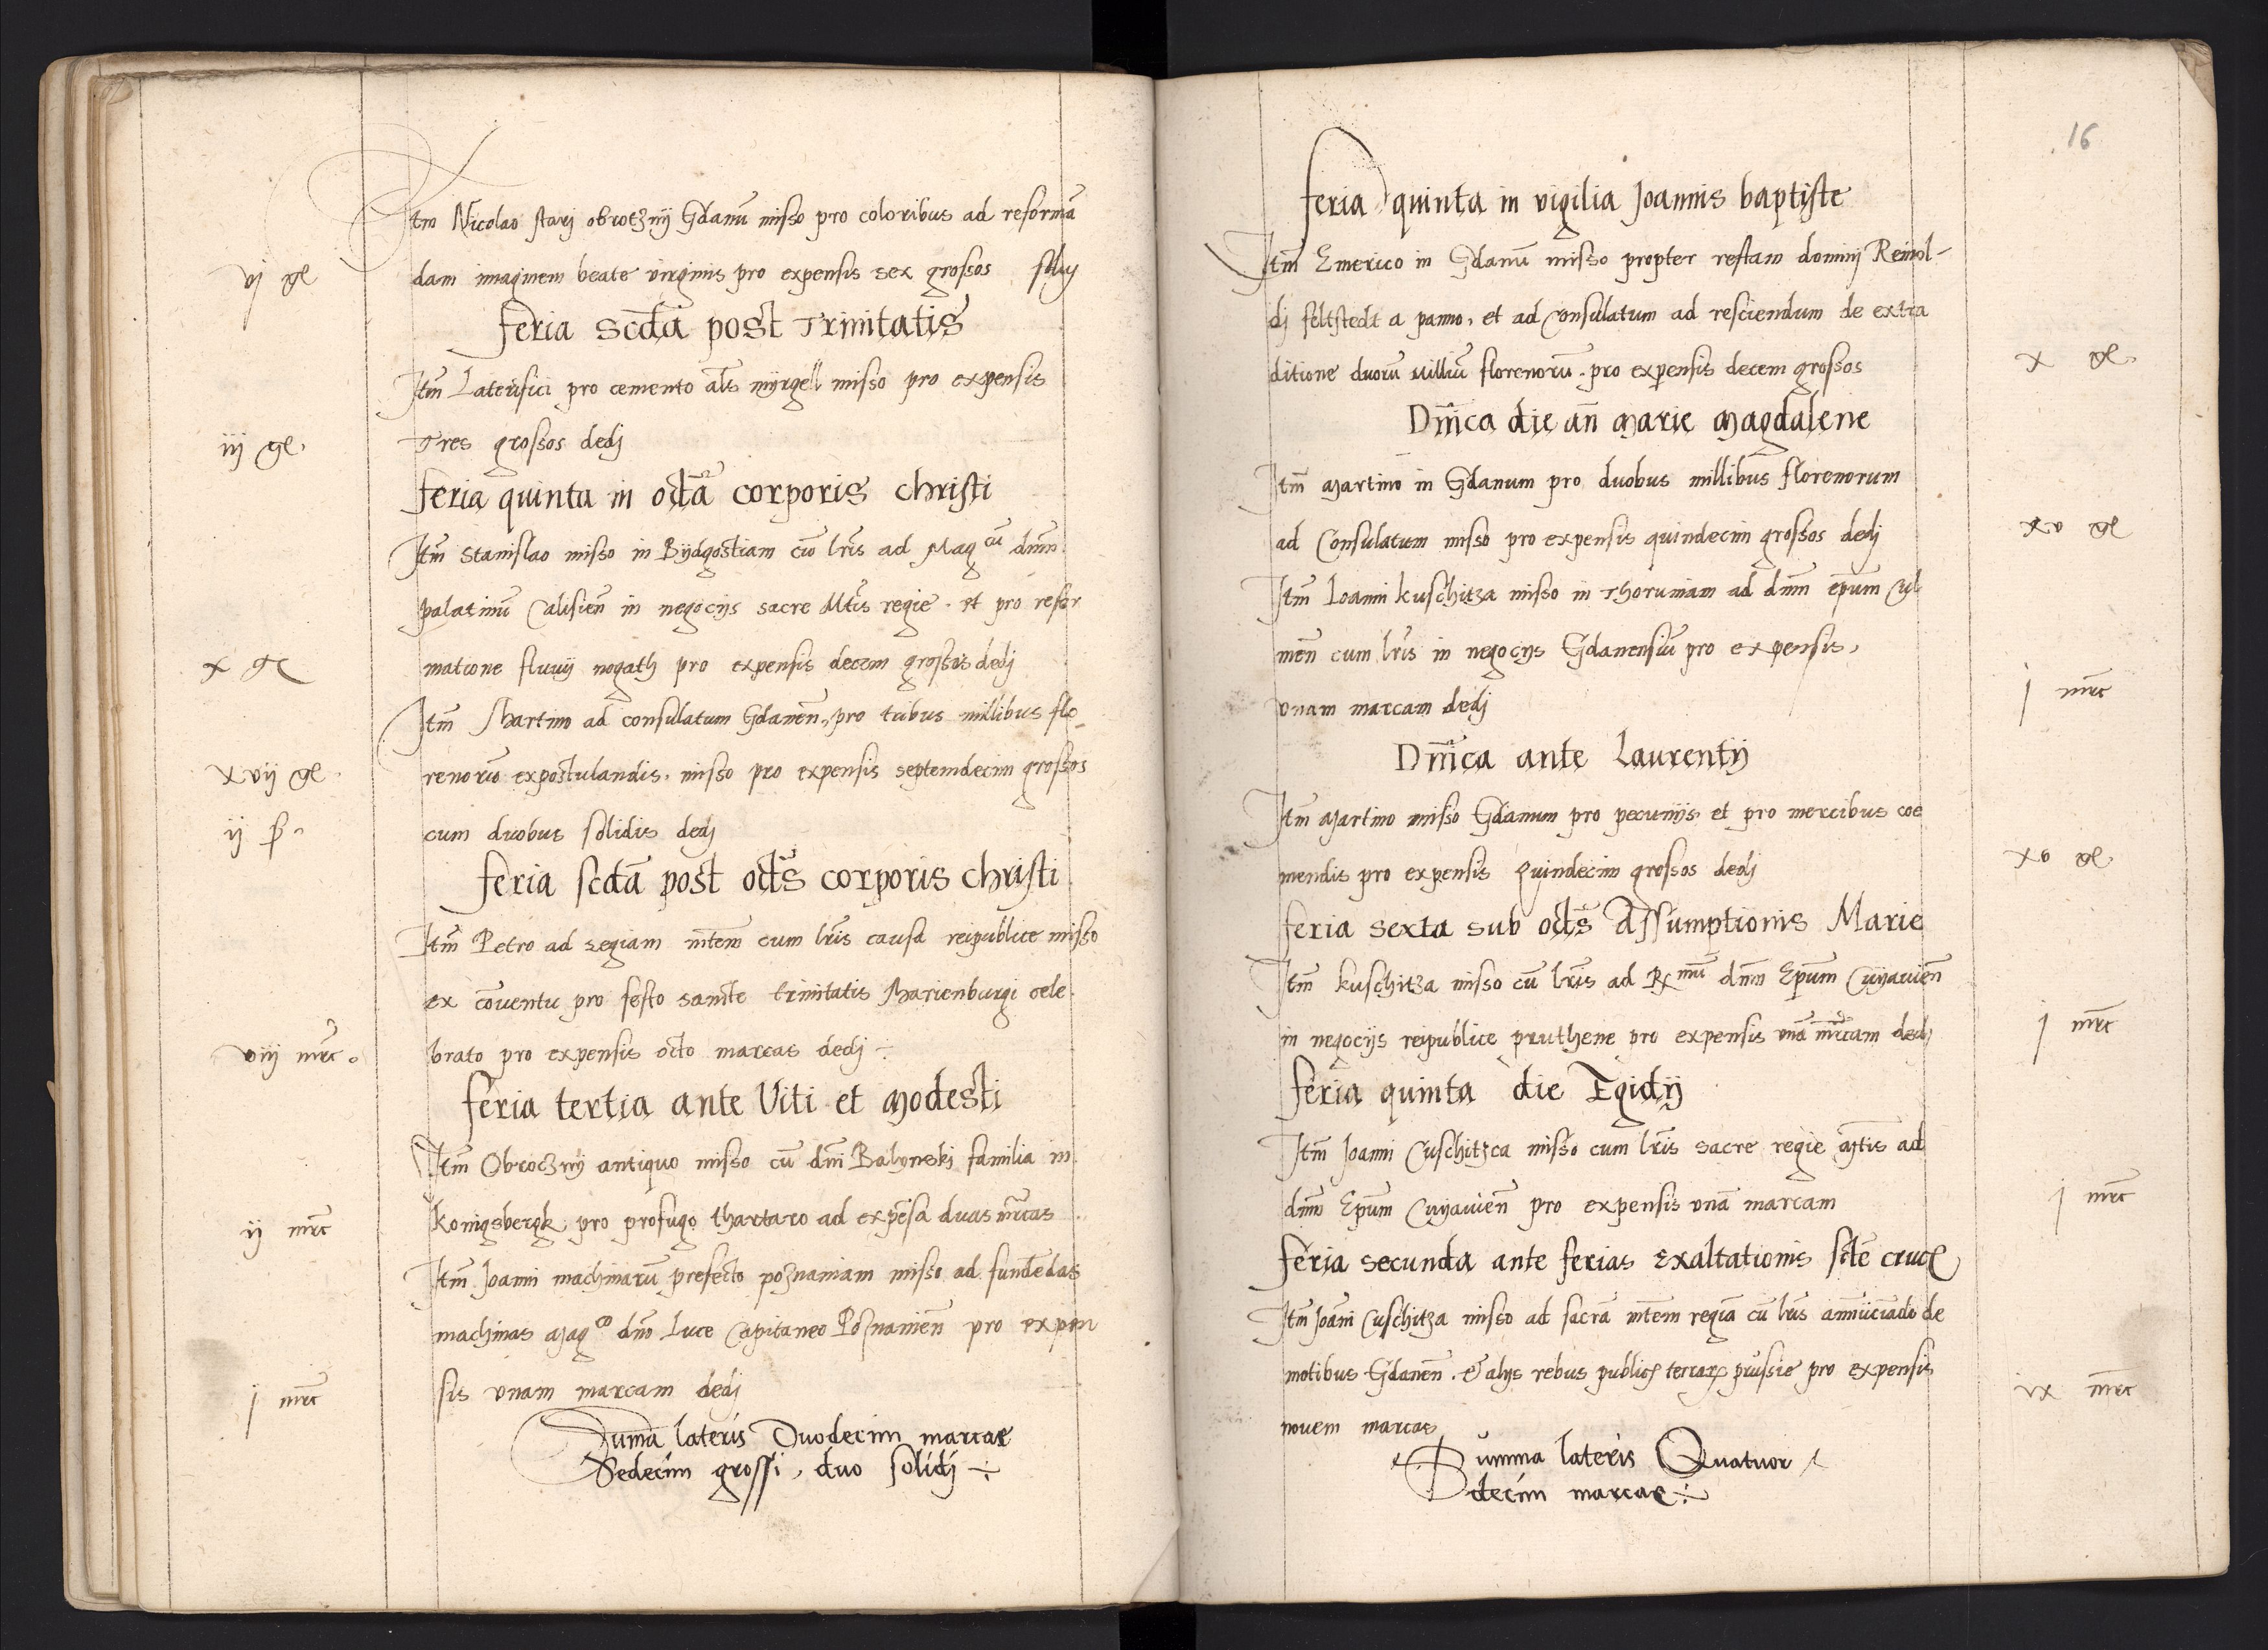 Itm Nicolao starj obrotznij Gdanū misso pro coloribus ad reformā
vj gl
dam imaginem beate virginis pro expensis sex grossos soluj
feria scdā post Trinitatis
Itm Laterifici pro cemento als mijrgell misso pro expensis
iij gl.
Tres grossos dedj
feria quinta in octā corporis christi
Itm Stanislao misso in Bijdgostiam cū lris ad Magcū dnm
palatinū Calisien in negocijs sacre Mtis regie. et pro refor
x gl
matione fluvij nogath pro expensis decem grossos dedj
Itm Martino ad consulatum Gdanen. pro tribus millibus flo-
xvij gl.
renorū expostulandis. misso pro expensis septemdecim grossos
ij ß.
cum duobus solidis dedj
feria scdā post octs corporis christi
Itm Petro ad regiam mtem cum lris causa reipublice misso
ex cōventu pro festo sancte trinitatis Marienburgi cele-
viij mrc.
brato pro expensis octo marcas dedj ÷
feria tertia ante Viti et Modesti
Itm Obroczny antiquo misso cū dni Balynskj familia in
ij mrc
Konigsbergk pro profugo thartaro ad expēsa duas mrcas
Itm Joanni machinarū prefecto poznaniam misso ad fundēdas
machinas Magco dno Luce Capitaneo Poznanien pro expen
j mrc
sis vnam marcam dedj
Sumā lateris Duodecim marcae
Sedecim grossi, duo solidj ÷
16
feria quinta in vigilia Joannis baptiste
Itm Emerico in Gdanū misso propter restam dominij Reinol-
dj feltstedt a panno. et ad Consulatum ad resciendum de extra
x gl.
ditione duorū milliū florenorū. pro expensis decem grossos
Dnīca die an Marie Magdalene
Itm Martino in Gdanum pro duobus millibus florenorum
xv gl
ad Consulatum misso pro expensis quindecim grossos dedj
Itm Ioanni kuschitza misso in Thoruniam ad dnm epum Cul
men cum lris in negocijs Gdanensiū pro expensis,
j mrc
vnam marcam dedj
Dnīca ante Laurentij
Itm Martino misso Gdanum pro pecunijs et pro mercibus coe
xv gl
mendis pro expensis Quindecim grossos dedj
feria sexta sub octs Assumptionis Marie
Itm kuschitza misso cū lris ad Rmū dnm Epum Cuyauien
j mrc
in negocijs reipublice pruthene pro expensis vnā mrcam dedj
feria quinta die Egidij
Itm Joanni Cuschitzca misso cum lris sacre regie Mtis ad
j mrc
dnm Epum Cuyauien pro expensis vnā marcam
feria secunda ante ferias Exaltationis scte cruc
Itm Joāni Cuschitza misso ad sacrā mtem regiā cū lris annūciādo de
motibus Gdanen. & alys rebus public terrar prussie pro expensis
ix mrc
novem marcas
Summa lateris Quatuor
decim marcae ÷